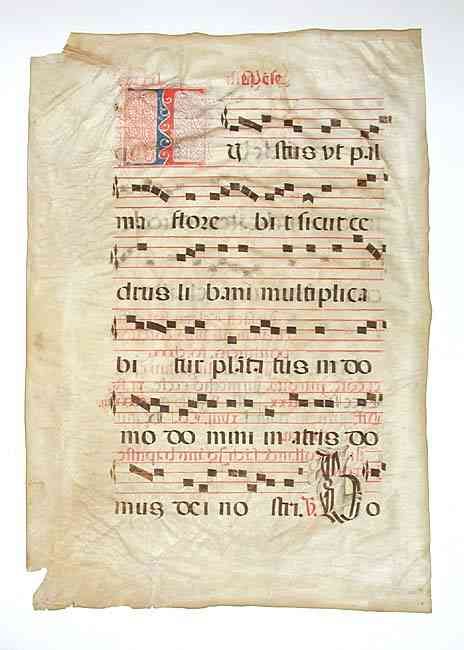 I u stus vt pal
ma flore bi t sicut ce
drus li bani multiplica
bi tur plāta tus in do
mo do mini in atriis do
mus dei no stri. ℣. D o